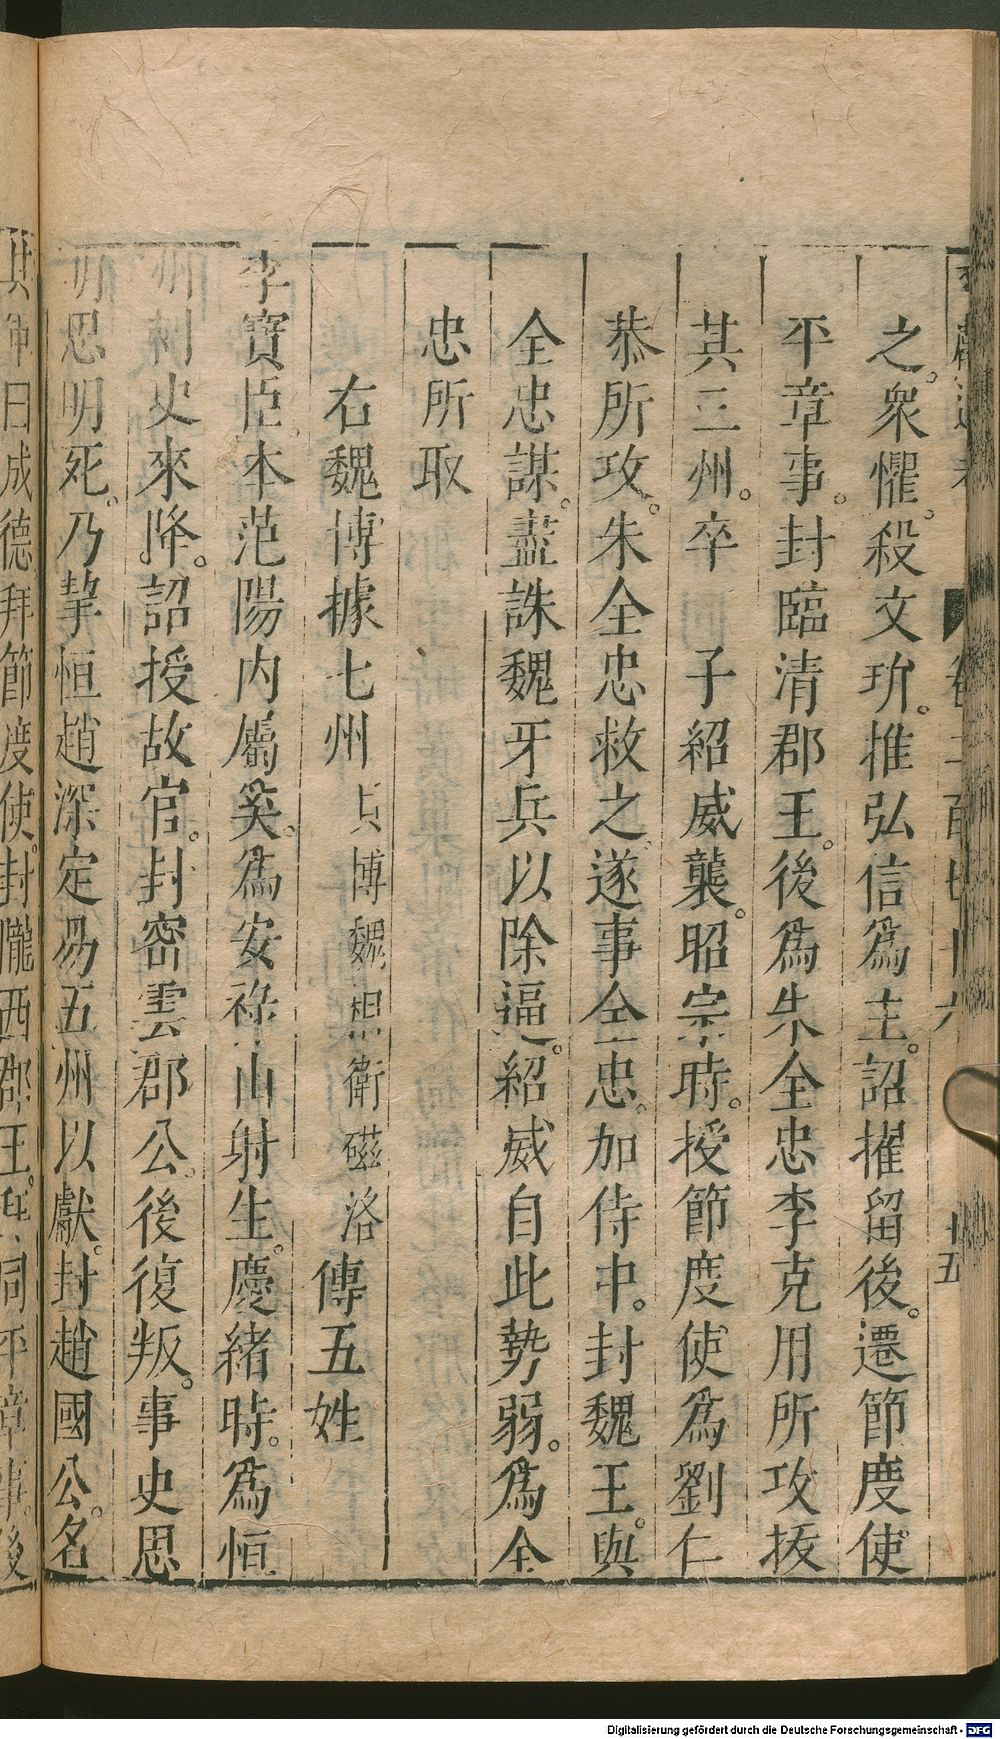 之。衆懼。殺文㺬。推弘信爲主。詔擢留後。遷節度使
平章事。封臨清郡王。後爲朱全忠李克用所攻拔
其三州。卒 子紹威襲。昭宗時。授節度使爲劉仁
恭所攻。朱全忠救之遂事全忠。加侍中。封魏王。與
全忠謀。盡誅魏牙兵以除逼。紹威自此勢弱。爲全
忠所取
右魏博據七州貝博魏相衛磁洛傳五姓
李寶臣。本范陽内屬奚。爲安祿山射生。慶緒時。爲恒
州刺史來降。詔授故官。封密雲郡公。後復叛。事史思
明思明死。乃挈恒趙深定易五州以獻。封趙國公。名
其軍曰成德拜節度使。封隴西郡王。同平章事。後
卷二百七十六
廿五
Digitalisierung gefördert durch die Deutsche Forschungsgemeinschaft - DFG